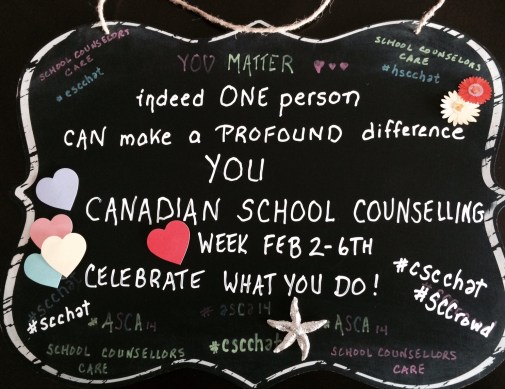 SCHOOL COUNSELORS
CARE
#escchat
YOU MATTER
SCHOOL COUNSELORS
CARE
#hscchat
indeed ONE person
CAN make a PROFOUND difference
YOU
CANADIAN SCHOOL COUNSELLING
WEEK FEB 2-6TH
CELEBRATE WHAT YOU DO!
#cscchat
#SCCrowd
#scchat
#ASCA14
SCHOOL COUNSELLORS
CARE
#asca14
#cscchat
#ASCA14
SCHOOL COUNSELLORS
CARE